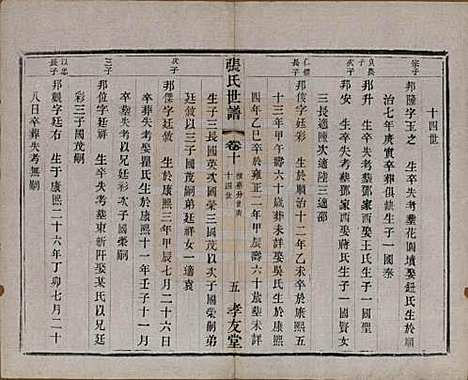 十四世
宗子
邦陵字玉之 生卒失考葬花園墳娶鈕氏生於順
治七年庚寅卒葬俱缺生子一國泰
貞奧次子
邦升 生卒失考葬鄧家酉娶王氏生子一國聖
三子
邦安 生卒失考葬鄧家酉娶蔣氏生子一國賢女
三長適陳次適陸三適邵
仁標長子
邦俊字廷彩 生於順治十二年乙未卒於康熙五
十三年甲午壽六十歲葬未詳娶吳氏生於康熙
四年乙巳卒於雍正二年甲辰壽六十歲葬未詳
生子三長國英次國榮三國茂以次子國榮嗣弟
廷位以三子國茂嗣弟廷敘女一適袁
張氏世譜
卷十
十四世
五
孝友堂
次子
邦傑字廷敘 生於康熙三年甲辰七月二十六日
卒葬失考娶瞿氏生於康熙十一年壬子十一月
卒葬失考以兄廷彩三子國茂嗣
三子
邦位字廷爵 生卒失考葬東新阡娶某氏以兄廷
彩次子國榮嗣
以忠長子
邦觀字廷右 生於康熙二十六年丁卯七月二十
八日卒葬失考無嗣